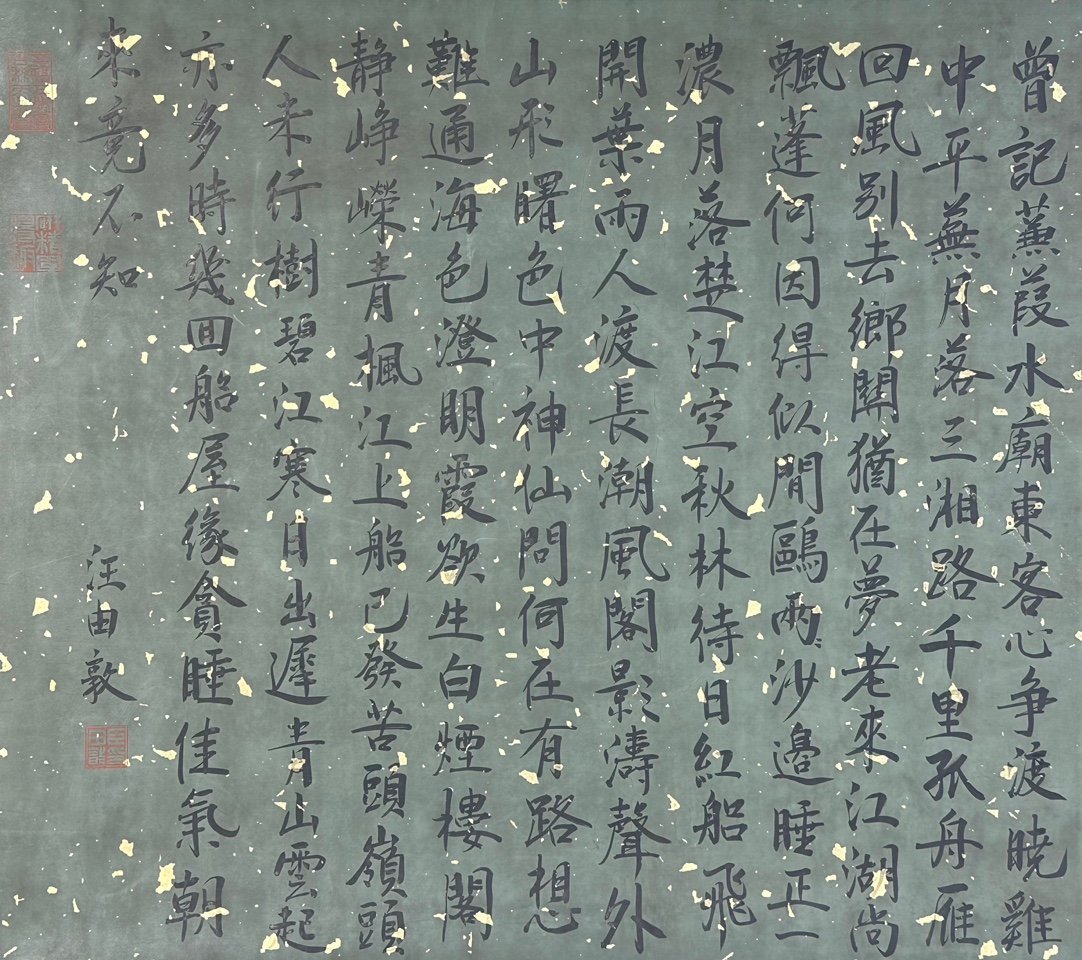 曾記蒹葭水廟東客心争渡曉雞
中平蕪月落三湘路千里孤舟雁
回風别去鄉關猶在夢老來江湖尚
飄蓬何因得似閒鷗兩〻沙邊睡正一
濃月落楚江空秋林待日紅船飛
開葉雨人渡長潮風閣影濤聲外
山形曙色中神仙問何在有路想
難通海色澄明霞欲生白煙樓閣
静崢嶸青楓江上船已發苦頭嶺頭
人未行樹碧江寒日出遲青山雲起
亦多時幾回船屋緣貪睡佳氣朝
來竟不知
汪由敦